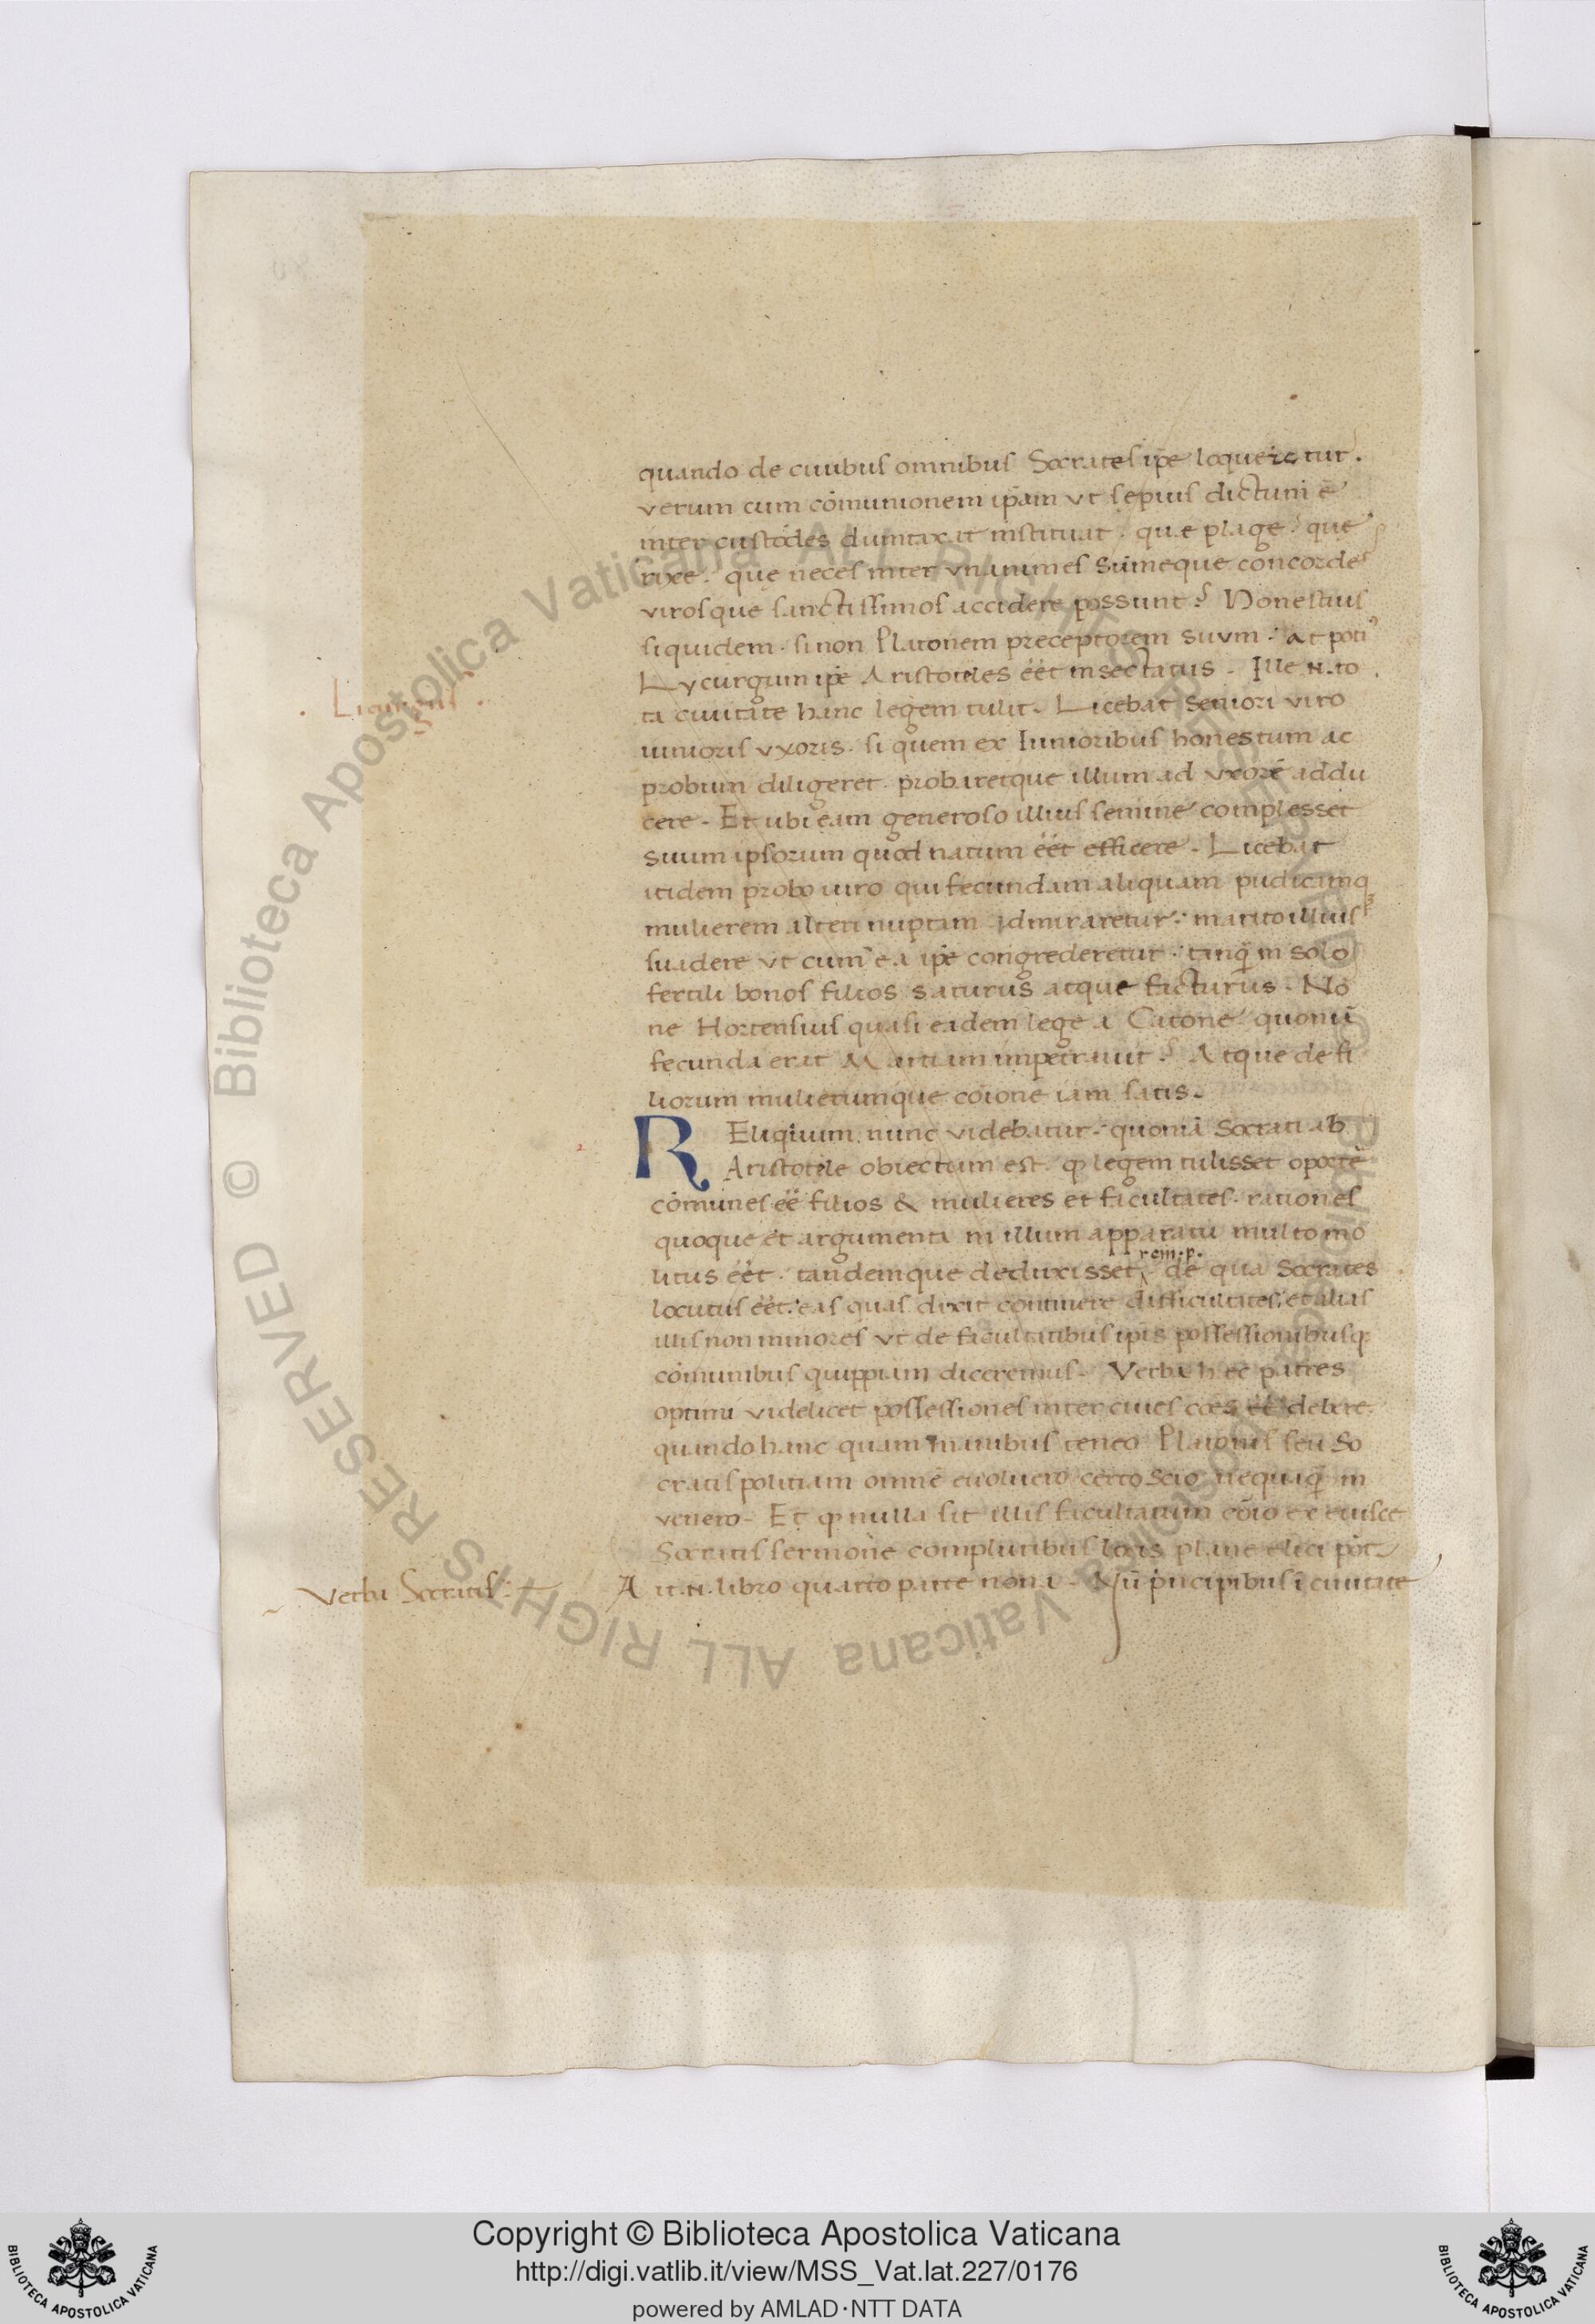 quando de ciuibus omnibus Socrates ipe loqueretur.
verum cum cõmunionem ipãm vt sepius dictum ẽ
inter custodes dumtaxat instituat. que plage? que
rixe. que neces inter vnanimes summeque concordes
virosque sanctissimos accidere possunt? Honestius
siquidem. si non Platonem preceptorem suvm. at poti⁹
Lycurgum ipe Aristotiles eet insectatus. Ille .N. to
Licurgus
ta ciuitate hanc legem tulit. Licebat seniori viro
iunioris vxoris. si quem ex Iunioribus honestum ac
probum diligeret. probaretque illum ad vxorẽ addu
cere. Et ubi eam generoso illius semine complesset
suum ipsorum quod natum eet efficere. Licebat
itidem probo uiro qui fecundam aliquam pudicamq
mulierem alteri nuptam admiraretur. marito illius
suadere vt cum ea ipe congrederetur. tanq̃ in solo
fertili bonos filios saturus atque facturus. Nõ
ne Hortensius quasi eadem lege a Catone quoniã
fecunda erat Martiam impetrauit? Atque de fi
liorum mulierumque coione iam satis.
REliquum nunc videbatur. quoniã Socrati ab
Aristotile obiectum est. ꝙ legem tulisset oporte
cõmunes ee filios & mulieres et facultates. rationes
quoque et argumenta in illum apparatu multo mo
rem.p.
litus eet. tandemque deduxisset, de qua Socrates
locutus eet. eas quas dixit continere difficultates. et alias
illis non minores vt de facultatibus ipis possessionibusq;
cõmunibus quippiam diceremus. Verba hec patres
optimi videlicet possessiones inter ciues coes ee debere.
quando hanc quam manibus teneo Platonis seu So
cratis politiam omnẽ euoluero certo scio nequaq̃ in
venero. Et ꝙ nulla sit illis facultatum cõio ex euisce
Socratis sermone compluribus locis plane elici pot.
Verba Socratis:
Ait .N. libro quarto parte nona. Nũ pncipibus ĩ ciuitate
Copyright © Biblioteca Apostolica Vaticana
http://digi.vatlib.it/view/MSS_Vat.lat.227/0176
powered by AMLAD·NTT DATA